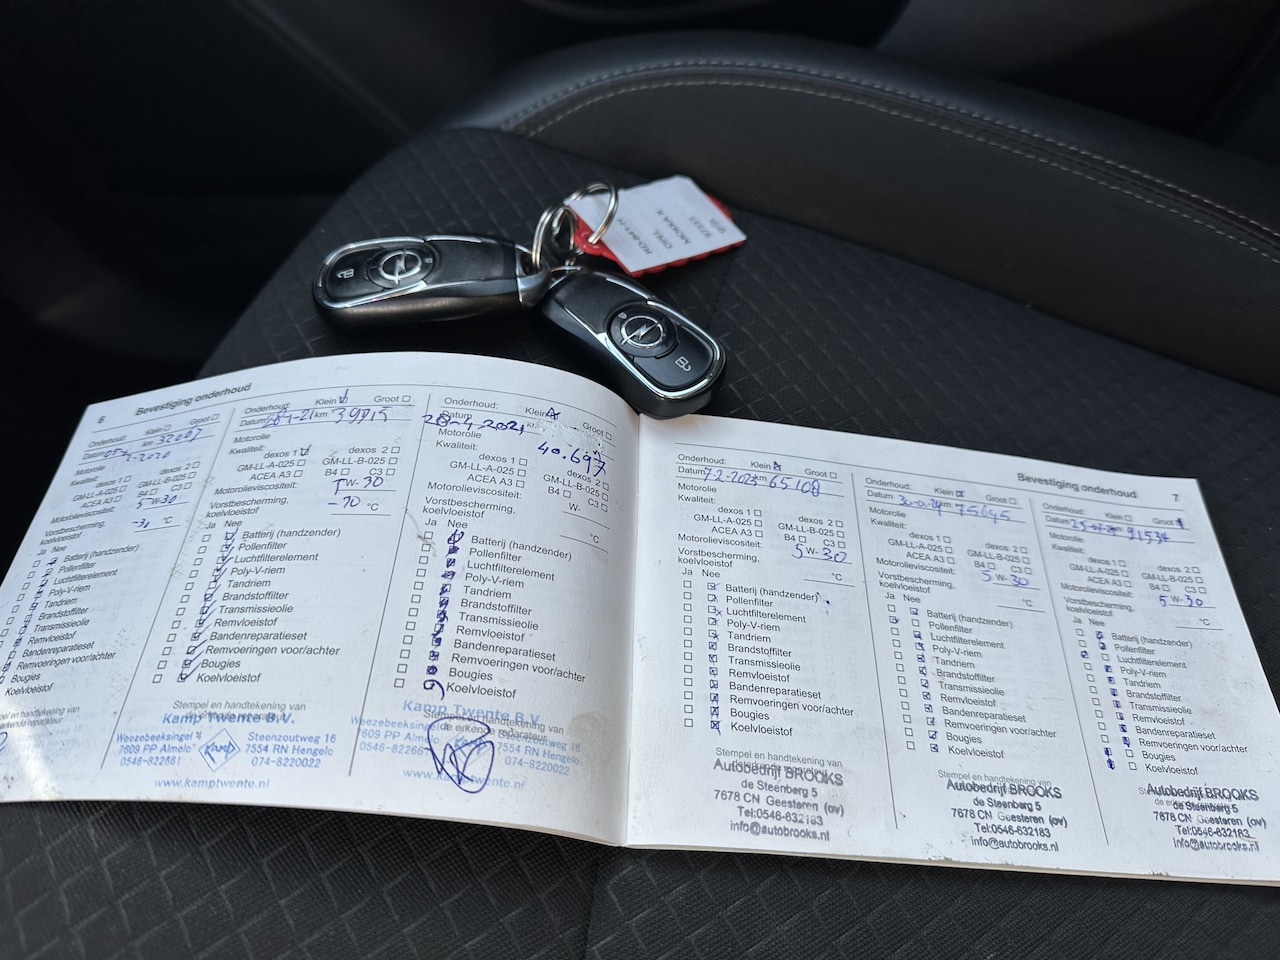 OPEL
MOKKA X
6
Bevestiging onderhoud
Onderhoud: Klein Groot
km 32007
Motorolie
Kwaliteit:
dexos 1 dexos 2
GM-LL-A-025 GM-LL-B-025
ACEA A3 B4 C3
Motorolieviscositeit: 5 W-30
Vorstbescherming, koelvloeistof -30 °C
Ja Nee
Batterij (handzender)
Pollenfilter
Luchtfilterelement
Poly-V-riem
Tandriem
Brandstoffilter
Transmissieolie
Remvloeistof
Bandenreparatieset
Remvoeringen voor/achter
Bougies
Koelvloeistof
Onderhoud: Klein Groot
Datum km
Motorolie
Kwaliteit:
dexos 1 dexos 2
GM-LL-A-025 GM-LL-B-025
ACEA A3 B4 C3
Motorolieviscositeit: W-30
Vorstbescherming, koelvloeistof °C
Ja Nee
Batterij (handzender)
Pollenfilter
Luchtfilterelement
Poly-V-riem
Tandriem
Brandstoffilter
Transmissieolie
Remvloeistof
Bandenreparatieset
Remvoeringen voor/achter
Bougies
Koelvloeistof
Stempel en handtekening van
Kamp Twente B.V.
Weezebeeksingel 4 Steenzoutweg 16
7609 PP Almelo KAMP 7554 RN Hengelo
0546-822661 074-8220022
www.kamptwente.nl
Onderhoud: Klein Groot
Datum 28-4-2021 km 40.697
Motorolie
Kwaliteit:
dexos 1 dexos 2
GM-LL-A-025 GM-LL-B-025
ACEA A3 B4 C3
Motorolieviscositeit: W-
Vorstbescherming, koelvloeistof °C
Ja Nee
Batterij (handzender)
Pollenfilter
Luchtfilterelement
Poly-V-riem
Tandriem
Brandstoffilter
Transmissieolie
Remvloeistof
Bandenreparatieset
Remvoeringen voor/achter
Bougies
Koelvloeistof
Stempel en handtekening van
Kamp Twente B.V.
Weezebeeksingel Steenzoutweg 16
7609 PP Almelo 7554 RN Hengelo
074-8220022
www.kamptwente.nl
Bevestiging onderhoud
7
Onderhoud: Klein Groot
Datum km 65108
Motorolie
Kwaliteit:
dexos 1 dexos 2
GM-LL-A-025 GM-LL-B-025
ACEA A3 B4 C3
Motorolieviscositeit: 5 W-30
Vorstbescherming, koelvloeistof °C
Ja Nee
Batterij (handzender)
Pollenfilter
Luchtfilterelement
Poly-V-riem
Tandriem
Brandstoffilter
Transmissieolie
Remvloeistof
Bandenreparatieset
Remvoeringen voor/achter
Bougies
Koelvloeistof
Stempel en handtekening van
Autobedrijf BROOKS
de Steenberg 5
7678 CN Geesteren (ov)
Tel:0546-632183
info@autobrooks.nl
Onderhoud: Klein Groot
Datum km 75645
Motorolie
Kwaliteit:
dexos 1 dexos 2
GM-LL-A-025 GM-LL-B-025
ACEA A3 B4 C3
Motorolieviscositeit: 5 W-30
Vorstbescherming, koelvloeistof °C
Ja Nee
Batterij (handzender)
Pollenfilter
Luchtfilterelement
Poly-V-riem
Tandriem
Brandstoffilter
Transmissieolie
Remvloeistof
Bandenreparatieset
Remvoeringen voor/achter
Bougies
Koelvloeistof
Stempel en handtekening van
Autobedrijf BROOKS
de Steenberg 5
7678 CN Geesteren (ov)
Tel:0546-632183
info@autobrooks.nl
Onderhoud: Klein Groot
Datum 91534
Motorolie
Kwaliteit:
dexos 1 dexos 2
GM-LL-A-025 GM-LL-B-025
ACEA A3 B4 C3
Motorolieviscositeit: 5 W-30
Vorstbescherming, koelvloeistof °C
Ja Nee
Batterij (handzender)
Pollenfilter
Luchtfilterelement
Poly-V-riem
Tandriem
Brandstoffilter
Transmissieolie
Remvloeistof
Bandenreparatieset
Remvoeringen voor/achter
Bougies
Koelvloeistof
Autobedrijf BROOKS
de Steenberg 5
7678 CN Geesteren (ov)
Tel:0546-632183
info@autobrooks.nl